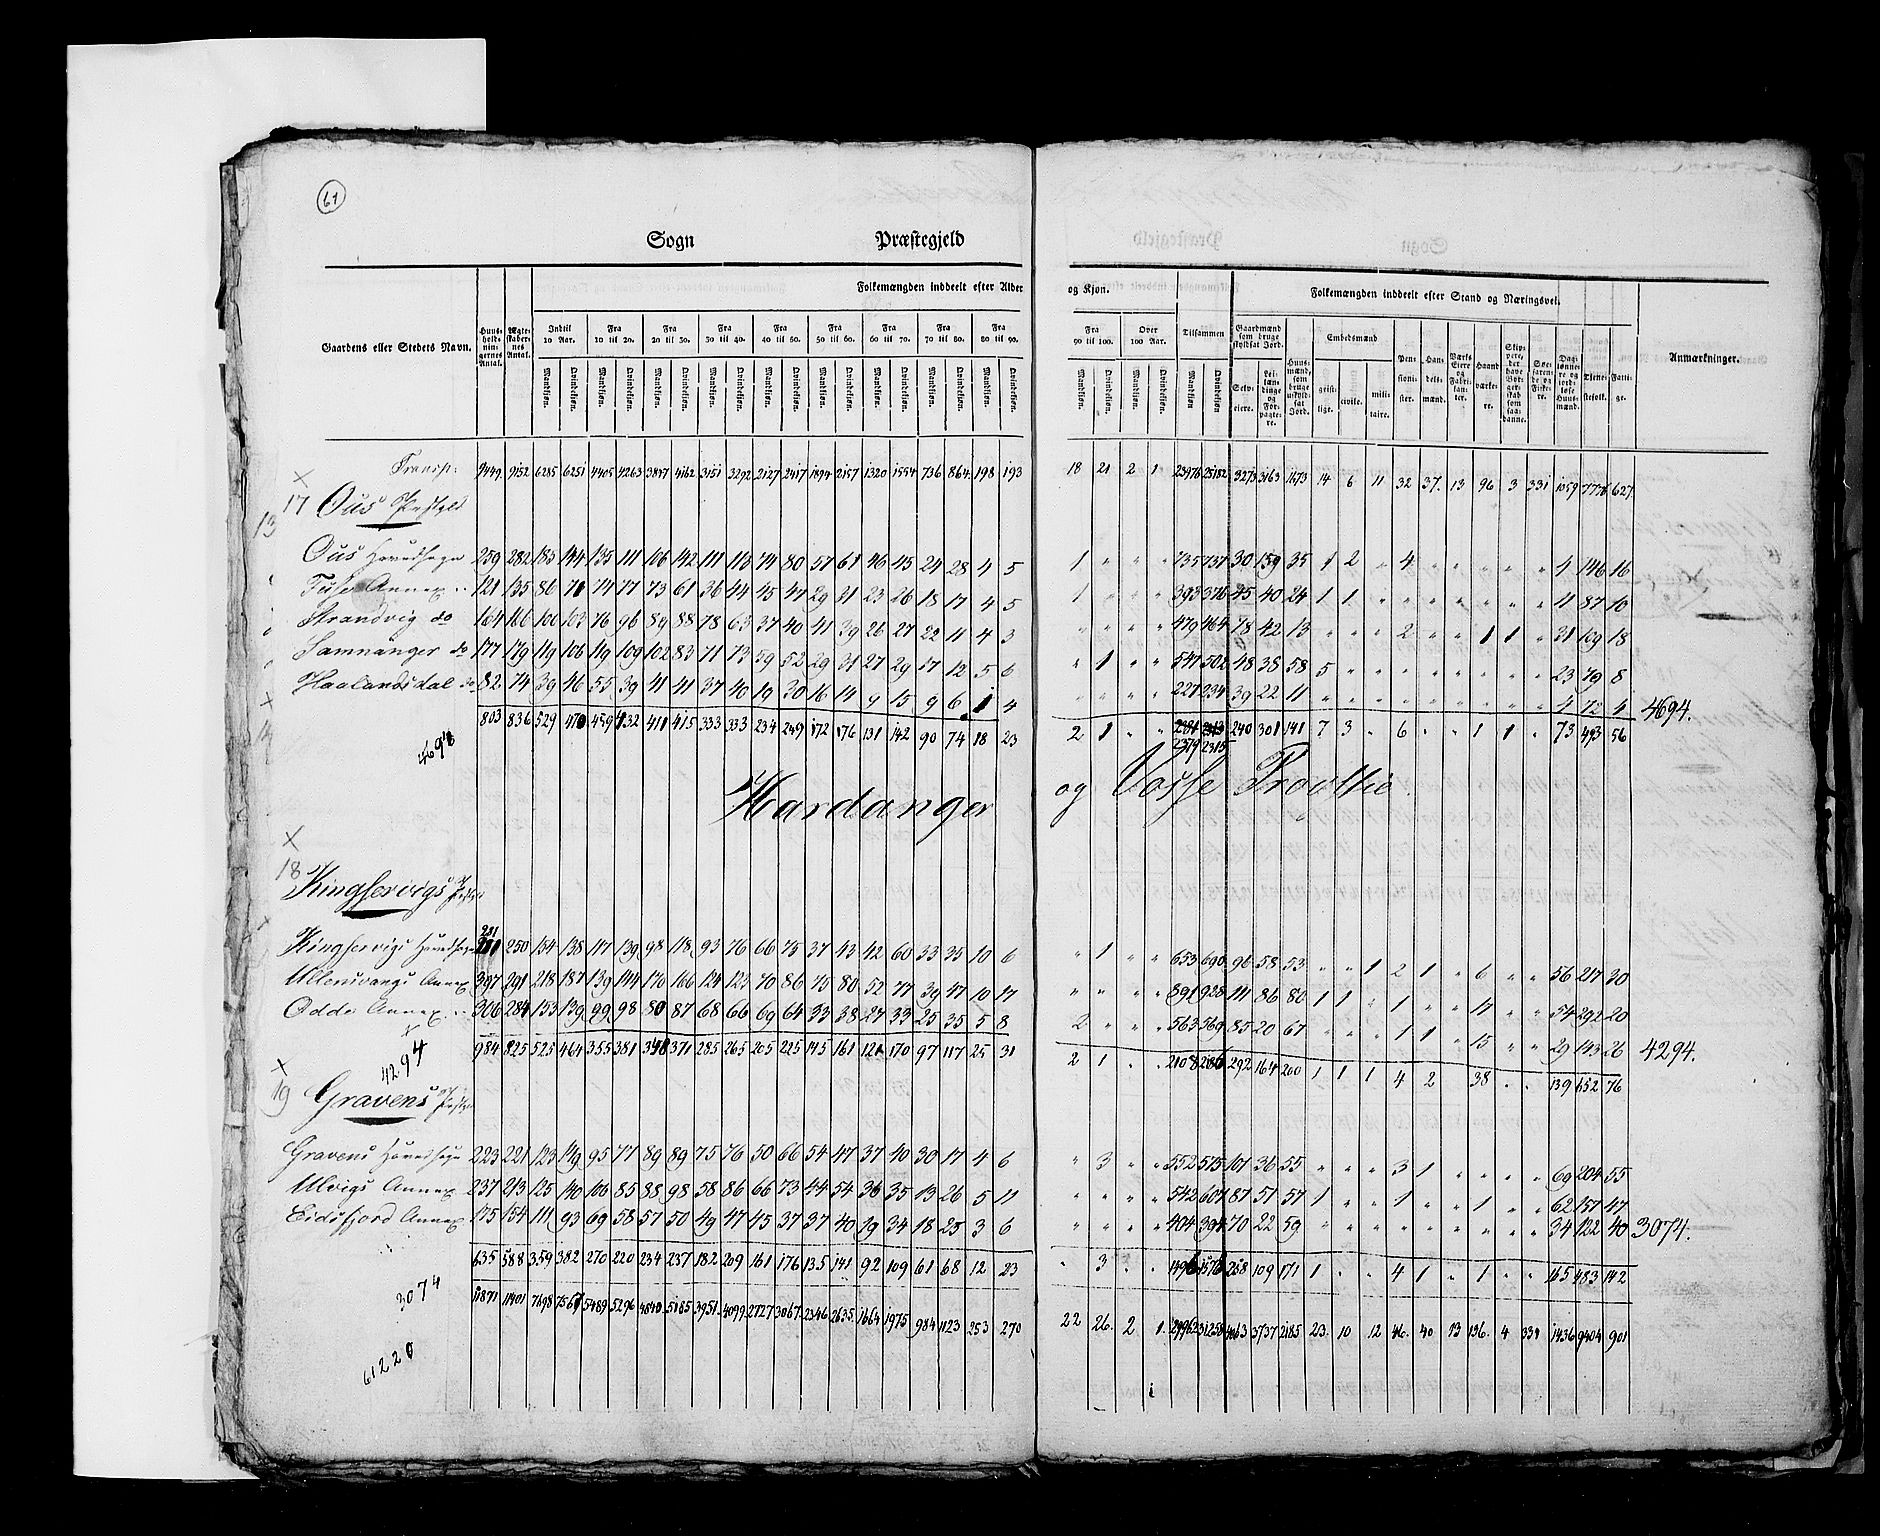 61
Sogn Præstegjeld
Gaardens eller Stedets Navn. Huusholdningernes Antal. Ægteskabernes Antal. Folkemængden inddeelt efter Alder og Kjøn. Tilsammen Folkemængden inddeelt efter Stand og Næringsvei. Anmærkninger.
Indtil 10 Aar. Fra 10 til 20. Fra 20 til 30. Fra 30 til 40. Fra 40 til 50. Fra 50 til 60. Fra 60 til 70. Fra 70 til 80. Fra 80 til 90. Fra 90 til 100. Over 100 Aar.
Mandkjøn. Qvindekjøn.
Gaardmænd som bruge skyldsat Jord. Embedsmænd
Selveiere. geistlige. civile. militaire. Pensionister. Handelsmænd. Haandværkere. Tjenestefolk. Fattige.
Transp: 9449 9152 6285 6251 4405 4263 3847 4162 3151 3292 2127 2417 1894 2157 1320 1554 736 864 198 193 18 21 2 1 23976 25182 3273 3163 1673 14 6 11 32 37 13 96 3 331 1059 7776 627
17 Ous Præstgld
13
Ous Hovedsogn 259 282 185 144 135 111 106 142 111 113 74 80 57 61 46 45 24 28 4 5 1 " " " 735 737 30 159 35 1 2 " 4 " " " " " 4 146 16
Fuse Annex 121 135 86 71 74 77 73 61 36 44 45 47 29 31 23 26 18 17 4 5 1 " " " 393 376 45 40 24 1 1 " " " " " " " 11 87 10
Strandvig do 164 166 100 103 76 96 89 88 78 63 37 40 41 39 26 27 22 11 4 3 " " " " 479 464 78 42 13 " " " 2 " " 1 1 " 31 109 18
Samnanger do 177 179 119 106 119 109 102 83 71 73 59 52 29 31 27 29 17 12 5 6 " 1 " " 547 502 48 38 58 5 " " " " " " " " 23 79 8
Haalandsdal do 82 74 39 46 55 39 41 41 37 40 19 30 16 14 9 15 9 6 1 4 " " " " 227 234 39 22 11 " " " " " " " " " 4 72 4 4694.
803 836 529 470 459 432 411 415 333 333 234 249 172 176 131 142 90 74 18 23 2 1 " " 240 301 141 7 3 " 6 " " 1 1 " 73 493 56
2379 2315
4698
Hardanger og Vosse Provstie.
18
Kingservigs Præstgld
231
Kingservigs Hovedsogn 250 154 138 117 139 98 118 93 76 66 75 37 43 42 60 33 35 10 6 " 1 " " 653 690 96 58 53 " " 1 2 1 " 6 " " 56 217 30
Ullensvangs Annex 397 291 218 187 139 144 170 166 124 123 70 86 75 80 52 77 39 47 10 17 " " " " 891 928 111 86 80 1 1 " 1 " " 17 " " 54 292 20
Odde Annex 306 284 153 139 99 98 80 87 68 66 69 64 33 38 27 33 25 35 5 8 2 " " " 563 569 85 20 67 " " " 1 1 " 15 " " 29 143 26 4294.
984 825 525 464 355 381 348 371 285 265 205 225 145 161 121 170 97 117 25 31 2 1 " " 2108 2186 292 164 200 1 1 1 4 2 38 " " 139 652 76
4294
19 Gravens Præstgld
Gravens Hovedsogn 223 221 123 149 95 77 89 89 75 76 50 66 54 47 37 40 30 17 4 6 " 3 " " 552 575 101 36 55 " " " 3 1 " " " " 69 204 55
Ulvigs Annex 237 213 125 140 106 85 88 98 58 86 66 73 44 54 36 35 13 26 5 11 " " " " 542 607 87 51 57 1 " " 1 " " 1 " " 62 157 47
Eidsfjord Annex 175 154 111 93 69 58 57 50 49 47 45 37 37 40 19 34 18 25 3 6 " " " " 404 394 70 22 59 " " " " " " " " " 34 122 40 3074.
635 588 359 382 270 220 234 237 182 209 161 176 135 141 92 109 61 68 12 23 " 3 " " 1496 1576 258 109 171 1 " " 4 1 " 1 " " 165 483 142
3074
11871 11401 7698 7567 5489 5296 4840 5185 3951 4099 2727 3067 2346 2635 1664 1975 984 1123 253 270 22 26 2 1 29962 31258 4063 3737 2185 23 10 12 46 40 13 136 4 331 1436 9404 901
61220